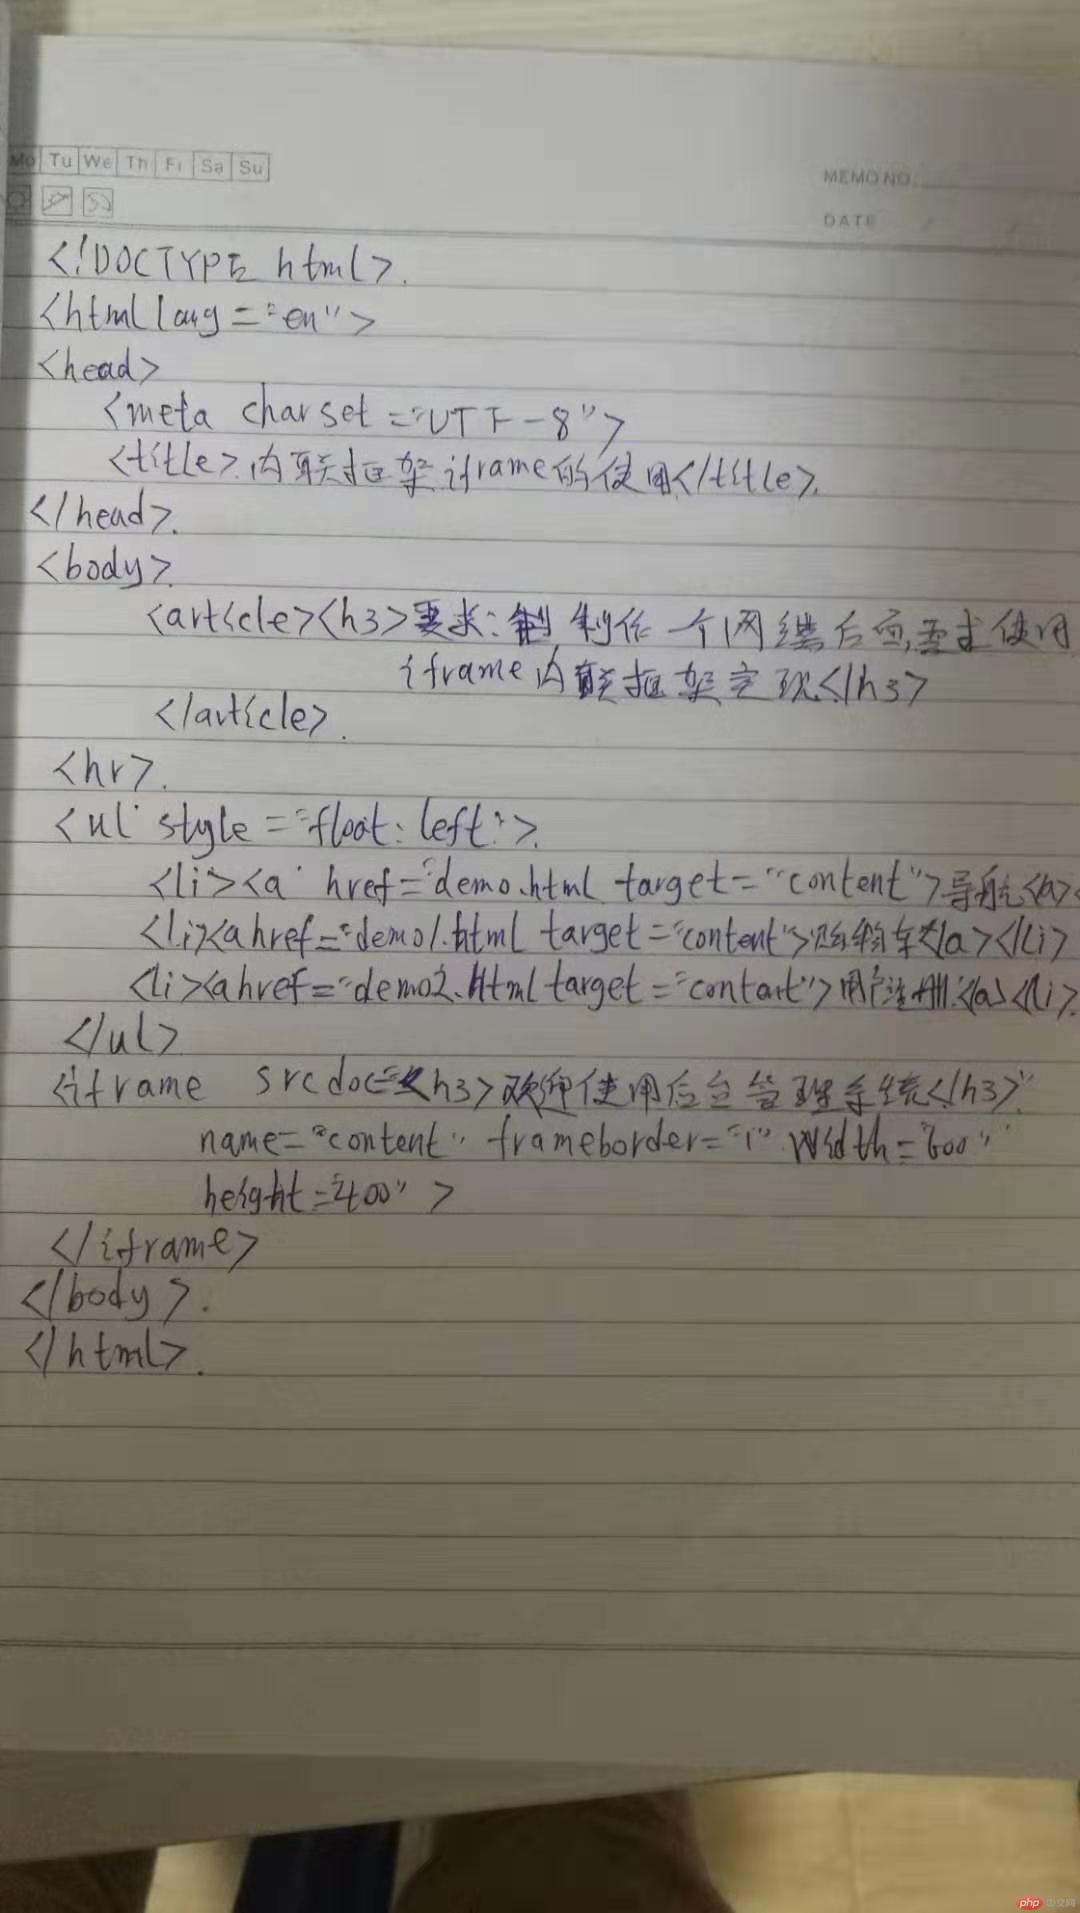 Mo Tu We Th Fi Sa Su
MEMO NO.
DATE
<!DOCTYPE html>.
<html lang="en">
<head>
<meta charset="UTF-8">
<title>内联框架iframe的使用</title>.
</head>.
<body>.
<article><h3>要求:制作一个网后面,要求使用
iframe内联框架实现</h3>
</article>.
<hr>.
<ul style="float:left">.
<li><a href="demo.html target="content">导航<a><
<li><a href="demo1.html target="content">购物车</a></li>
<li><a href="demo2.html target="contart">用户注册</a><li>.
</ul>
<iframe srcdoc="<h3>欢迎使用后台管理系统</h3>"
name="content" frameborder="1" width="600"
height="400">
</iframe>
</body>.
</html>.
php 中文网